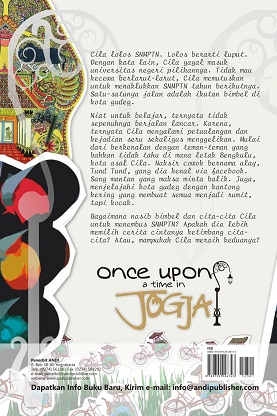 Cila lolos SNMPTN. Lolos berarti luput.
Dengan kata lain, Cila gagal masuk
universitas negeri pilihannya. Tidak mau
kecewa berlarut-larut, Cila memutuskan
untuk menaklukkan SNMPTN tahun berikutnya.
Satu-satunya jalan adalah ikutan bimbel di
kota gudeg.
Niat untuk belajar, ternyata tidak
sepenuhnya berjalan lancar. Karena,
ternyata Cila mengalami petualangan dan
kejadian seru sekaligus menggelikan. Mulai
dari berkenalan dengan teman-teman yang
bahkan tidak tahu di mana letak Bengkulu,
kota asal Cila. Naksir cowok bernama alay,
Tund Tund, yang dia kenal via facebook.
Sang mantan yang maksa minta balik. Juga,
menjelajahi kota gudeg dengan kantong
kering yang membuat semua menjadi rumit,
tapi kocak.
Bagaimana nasib bimbel dan cita-cita Cila
untuk menembus SNMPTN? Apakah dia lebih
memilih cerita cintanya ketimbang cita-
cita? Atau, mampukah Cila meraih keduanya?
once upon
a time in
JOGJA
Penerbit ANDI
Dapatkan Info Buku Baru, Kirim e-mail: info@andipublisher.com